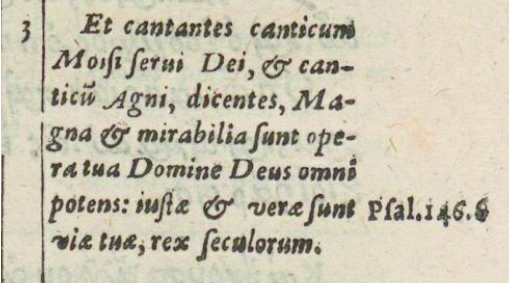 3 Et cantantes canticum
Moisi serui Dei, & can-
ticū Agni, dicentes, Ma-
gna & mirabilia sunt ope-
ra tua Domine Deus omni
potens: iustæ & veræ sunt Psal.146.6
viæ tuæ, rex seculorum.